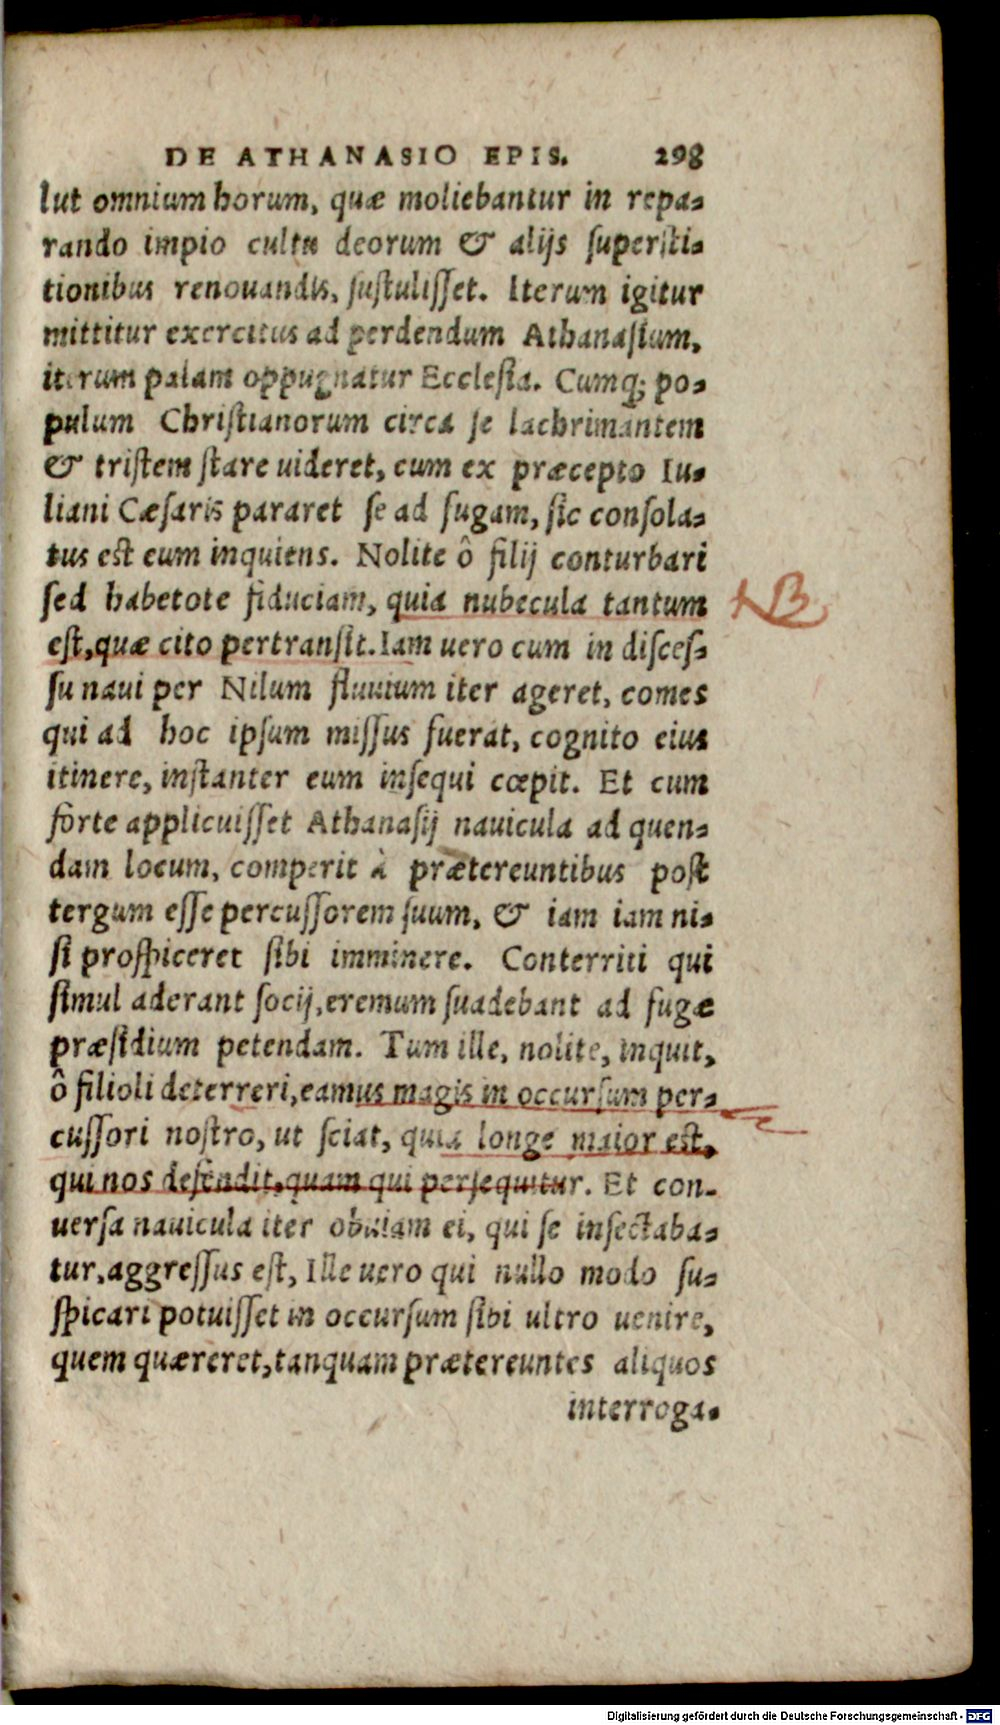 DE ATHANASIO EPIS. 298
lut omnium horum, quæ moliebantur in repa-
rando impio cultu deorum & alijs supersti-
tionibus renouandis, sustulisset. Iterum igitur
mittitur exercitus ad perdendum Athanasium,
iterum palam oppugnatur Ecclesia. Cumq; po-
pulum Christianorum circa se lachrimantem
& tristem stare uideret, cum ex præcepto Iu-
liani Cæsaris pararet se ad fugam, sic consola-
tus est eum inquiens. Nolite ô filij conturbari
sed habetote fiduciam, quia nubecula tantum
est, quæ cito pertransit. Iam uero cum in disces-
su naui per Nilum fluuium iter ageret, comes
qui ad hoc ipsum missus fuerat, cognito eius
itinere, instanter eum insequi cœpit. Et cum
forte applicuisset Athanasij nauicula ad quen-
dam locum, comperit à prætereuntibus post
tergum esse percussorem suum, & iam iam ni-
si prospiceret sibi imminere. Conterriti qui
simul aderant socij, eremum suadebant ad fugæ
præsidium petendam. Tum ille, nolite, inquit,
ô filioli deterreri, eamus magis in occursum per-
cussori nostro, ut sciat, quia longe maior est,
qui nos defendit, quam qui persequitur. Et con-
uersa nauicula iter obuiam ei, qui se insectaba-
tur, aggressus est, Ille uero qui nullo modo su-
spicari potuisset in occursum sibi ultro uenire,
quem quæreret, tanquam prætereuntes aliquos
interroga-
Digitalisierung gefördert durch die Deutsche Forschungsgemeinschaft - DFG